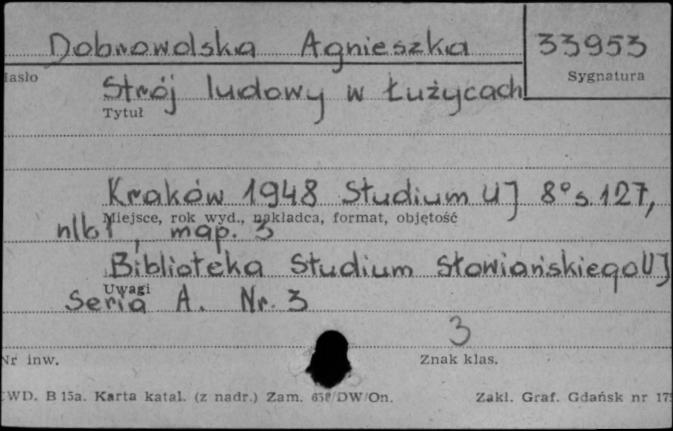 Dobrowolska Agnieszka 33953
Hasło Sygnatura
Strój ludowy w Łużycach
Tytuł
Kraków 1948 Studium UJ 8° s. 127,
Miejsce, rok wyd., nakładca, format, objętość
nlb1, map. 3
Biblioteka Studium Słowiańskiego UJ
Uwagi
Seria A. Nr. 3
3
Nr inw. Znak klas.
WD. B 15a. Karta katal. (z nadr.) Zam. DW/On. Zakł. Graf. Gdańsk nr 175